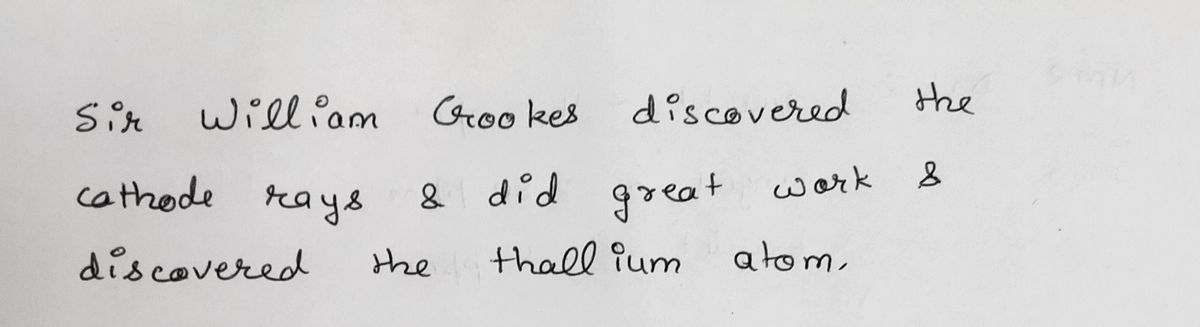 Sir William Crookes discovered the
cathode rays & did great work &
discovered the thallium atom.